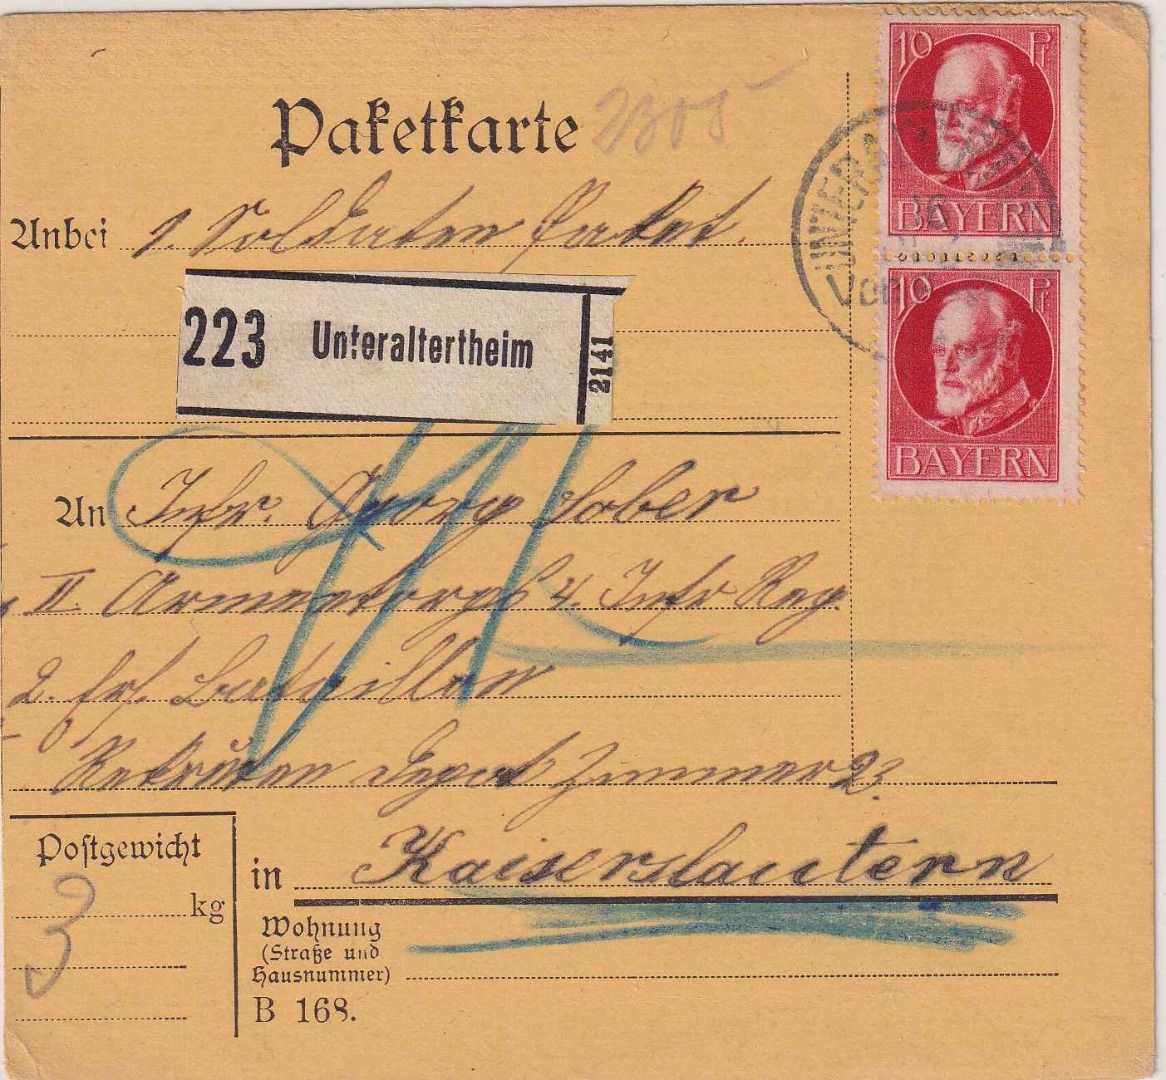 Paketkarte 2305
Anbei 1 Soldaten Paket.
223 Unteraltertheim 2141
An Infr. Georg Sober
II Armeekorps 4. Infr Reg.
2. Ers. Bataillon
Rekruten Depot Zimmer 23
Postgewicht
3 kg
in Kaiserslautern
Wohnung
(Straße und
Hausnummer)
B 168.
10 Pf
BAYERN
10 Pf
BAYERN
UNTERALTERTHEIM